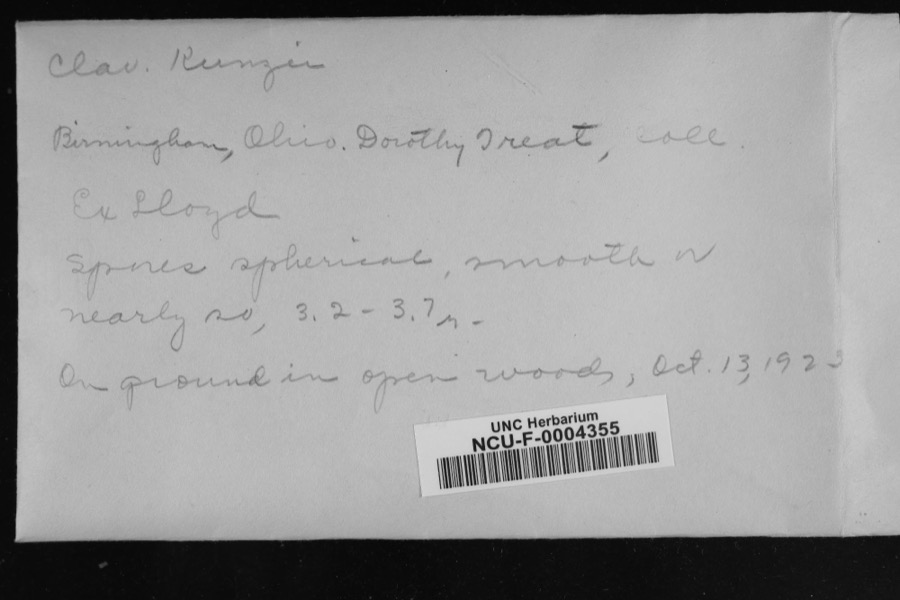 Clav. Kunzei
Birmingham, Ohio. Dorothy Treat, coll.
Ex Lloyd
Spores spherical, smooth or
nearly so, 3.2 - 3.7 µ -
On ground in open woods, Oct. 13, 192
UNC Herbarium
NCU-F-0004355